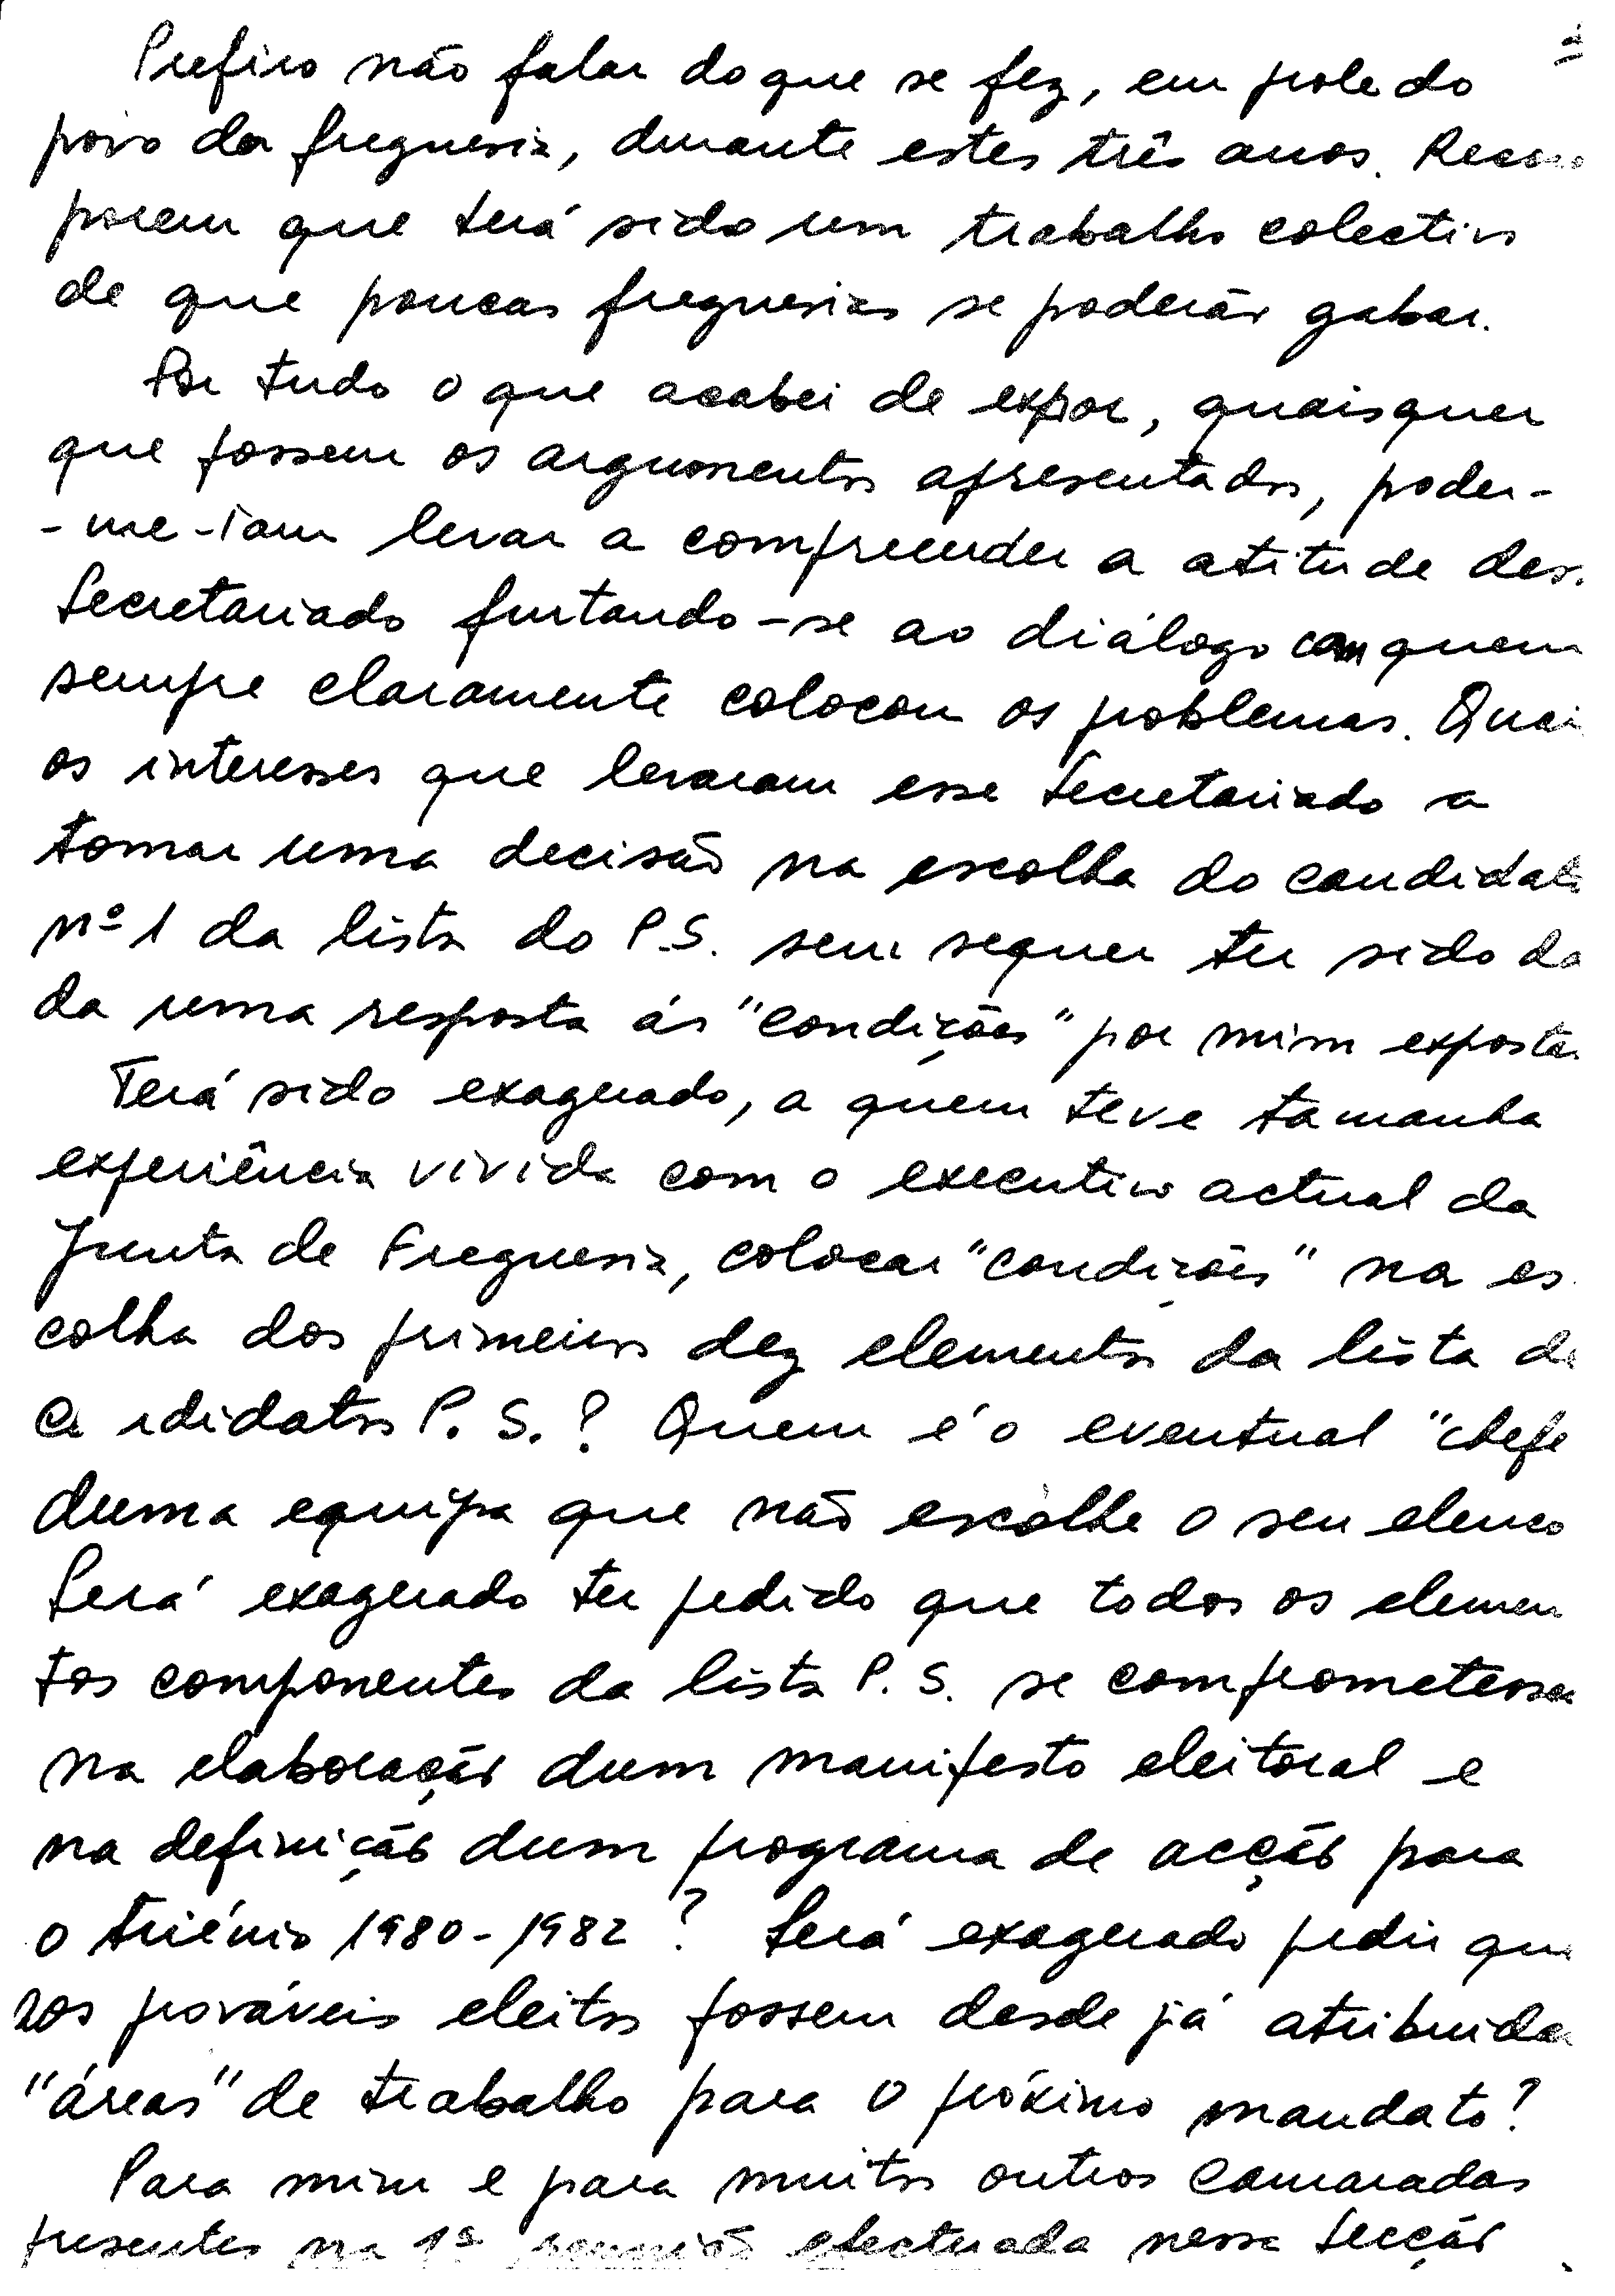 Prefiro não falar do que se fez, em prole do
povo da freguesia, durante estes três anos.
porem que terá sido um trabalho colectivo
de que poucas freguesias se poderão gabar.
Por tudo o que acabei de expor, quaisquer
que fossem os argumentos apresentados, poder-
-me-iam levar a compreender a atitude des
Secretariado furtando-se ao diálogo com quem
sempre claramente colocou os problemas. Quai
os interesses que levaram esse Secretariado a
tomar uma decisão na escolha do candidato
nº 1 da lista do P.S. sem sequer ter sido da
da uma resposta ás "condições" por mim expostas
Terá sido exagerado, a quem teve tamanha
experiência vivida com o executivo actual da
Junta de Freguesia, colocar "condições" na es
colha dos primeiros dez elementos da lista de
candidatos P. S.? Quem é o eventual "chefe
duma equipa que não escolhe o seu elenco
Será exagerado ter pedido que todos os elemen
tos componentes da lista P. S. se comprometessem
na elaboração dum manifesto eleitoral e
na definição dum programa de acção para
o triénio 1980-1982? Será exagerado pedir que
aos prováveis eleitos fossem desde já atribuida
"áreas" de trabalho para o próximo mandato?
Para mim e para muitos outros camaradas
presentes na 1ª reunião efectuada nessa Secção